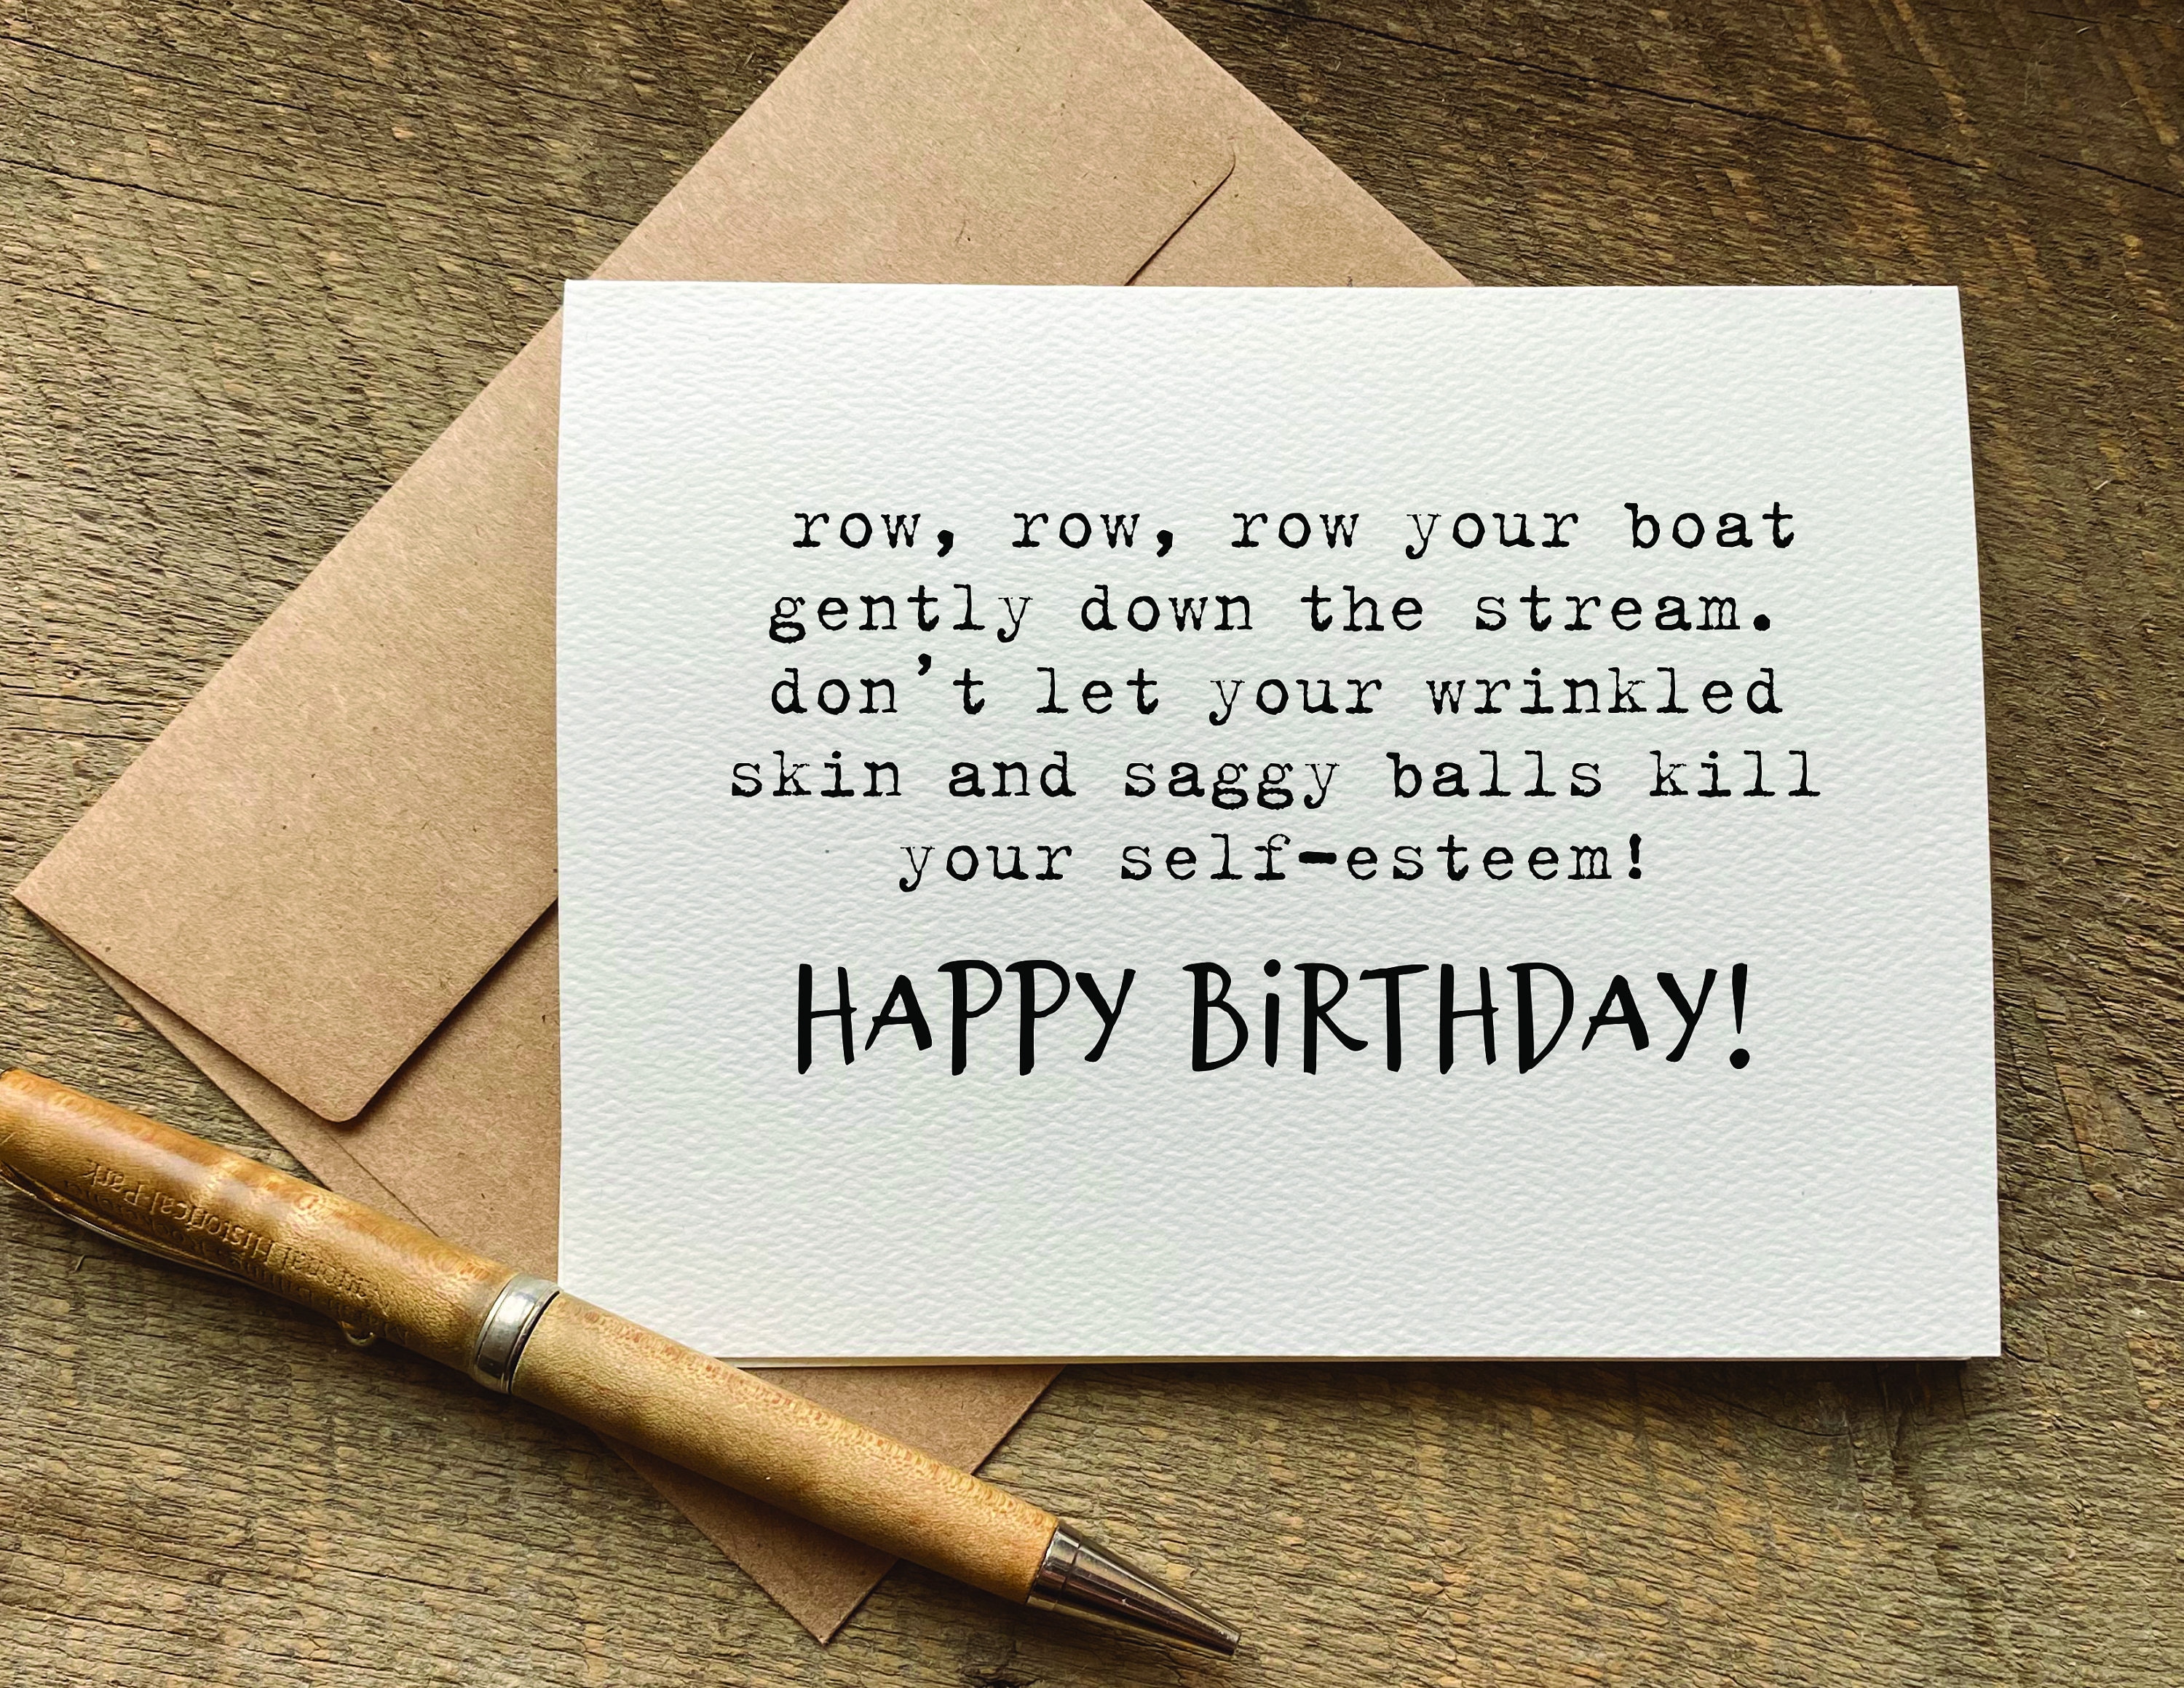 row, row, row your boat
gently down the stream.
don't let your wrinkled
skin and saggy balls kill
your self-esteem!
HAPPY BiRTHDAY!
Historical Park